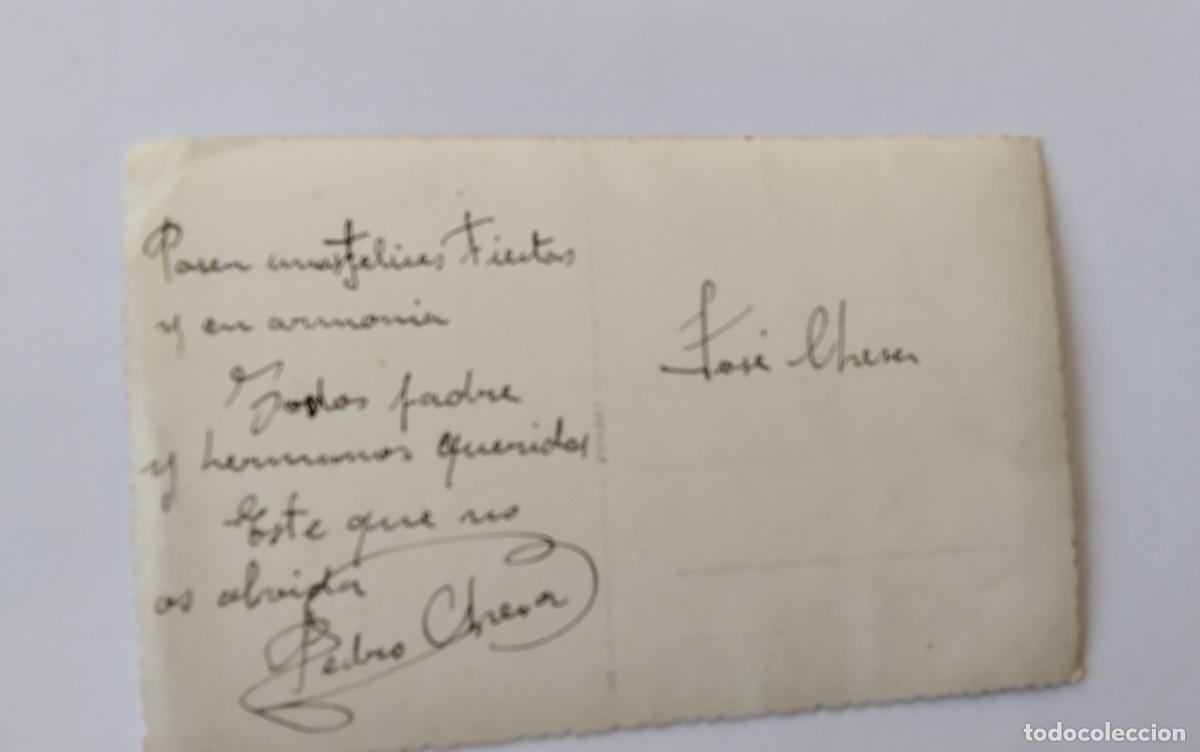 Pasen unas felices Fiestas
y en armonia
Todos padre
y hermanos queridos
Este que no
os olvida
Pedro Chesa
José Chesa
todocoleccion